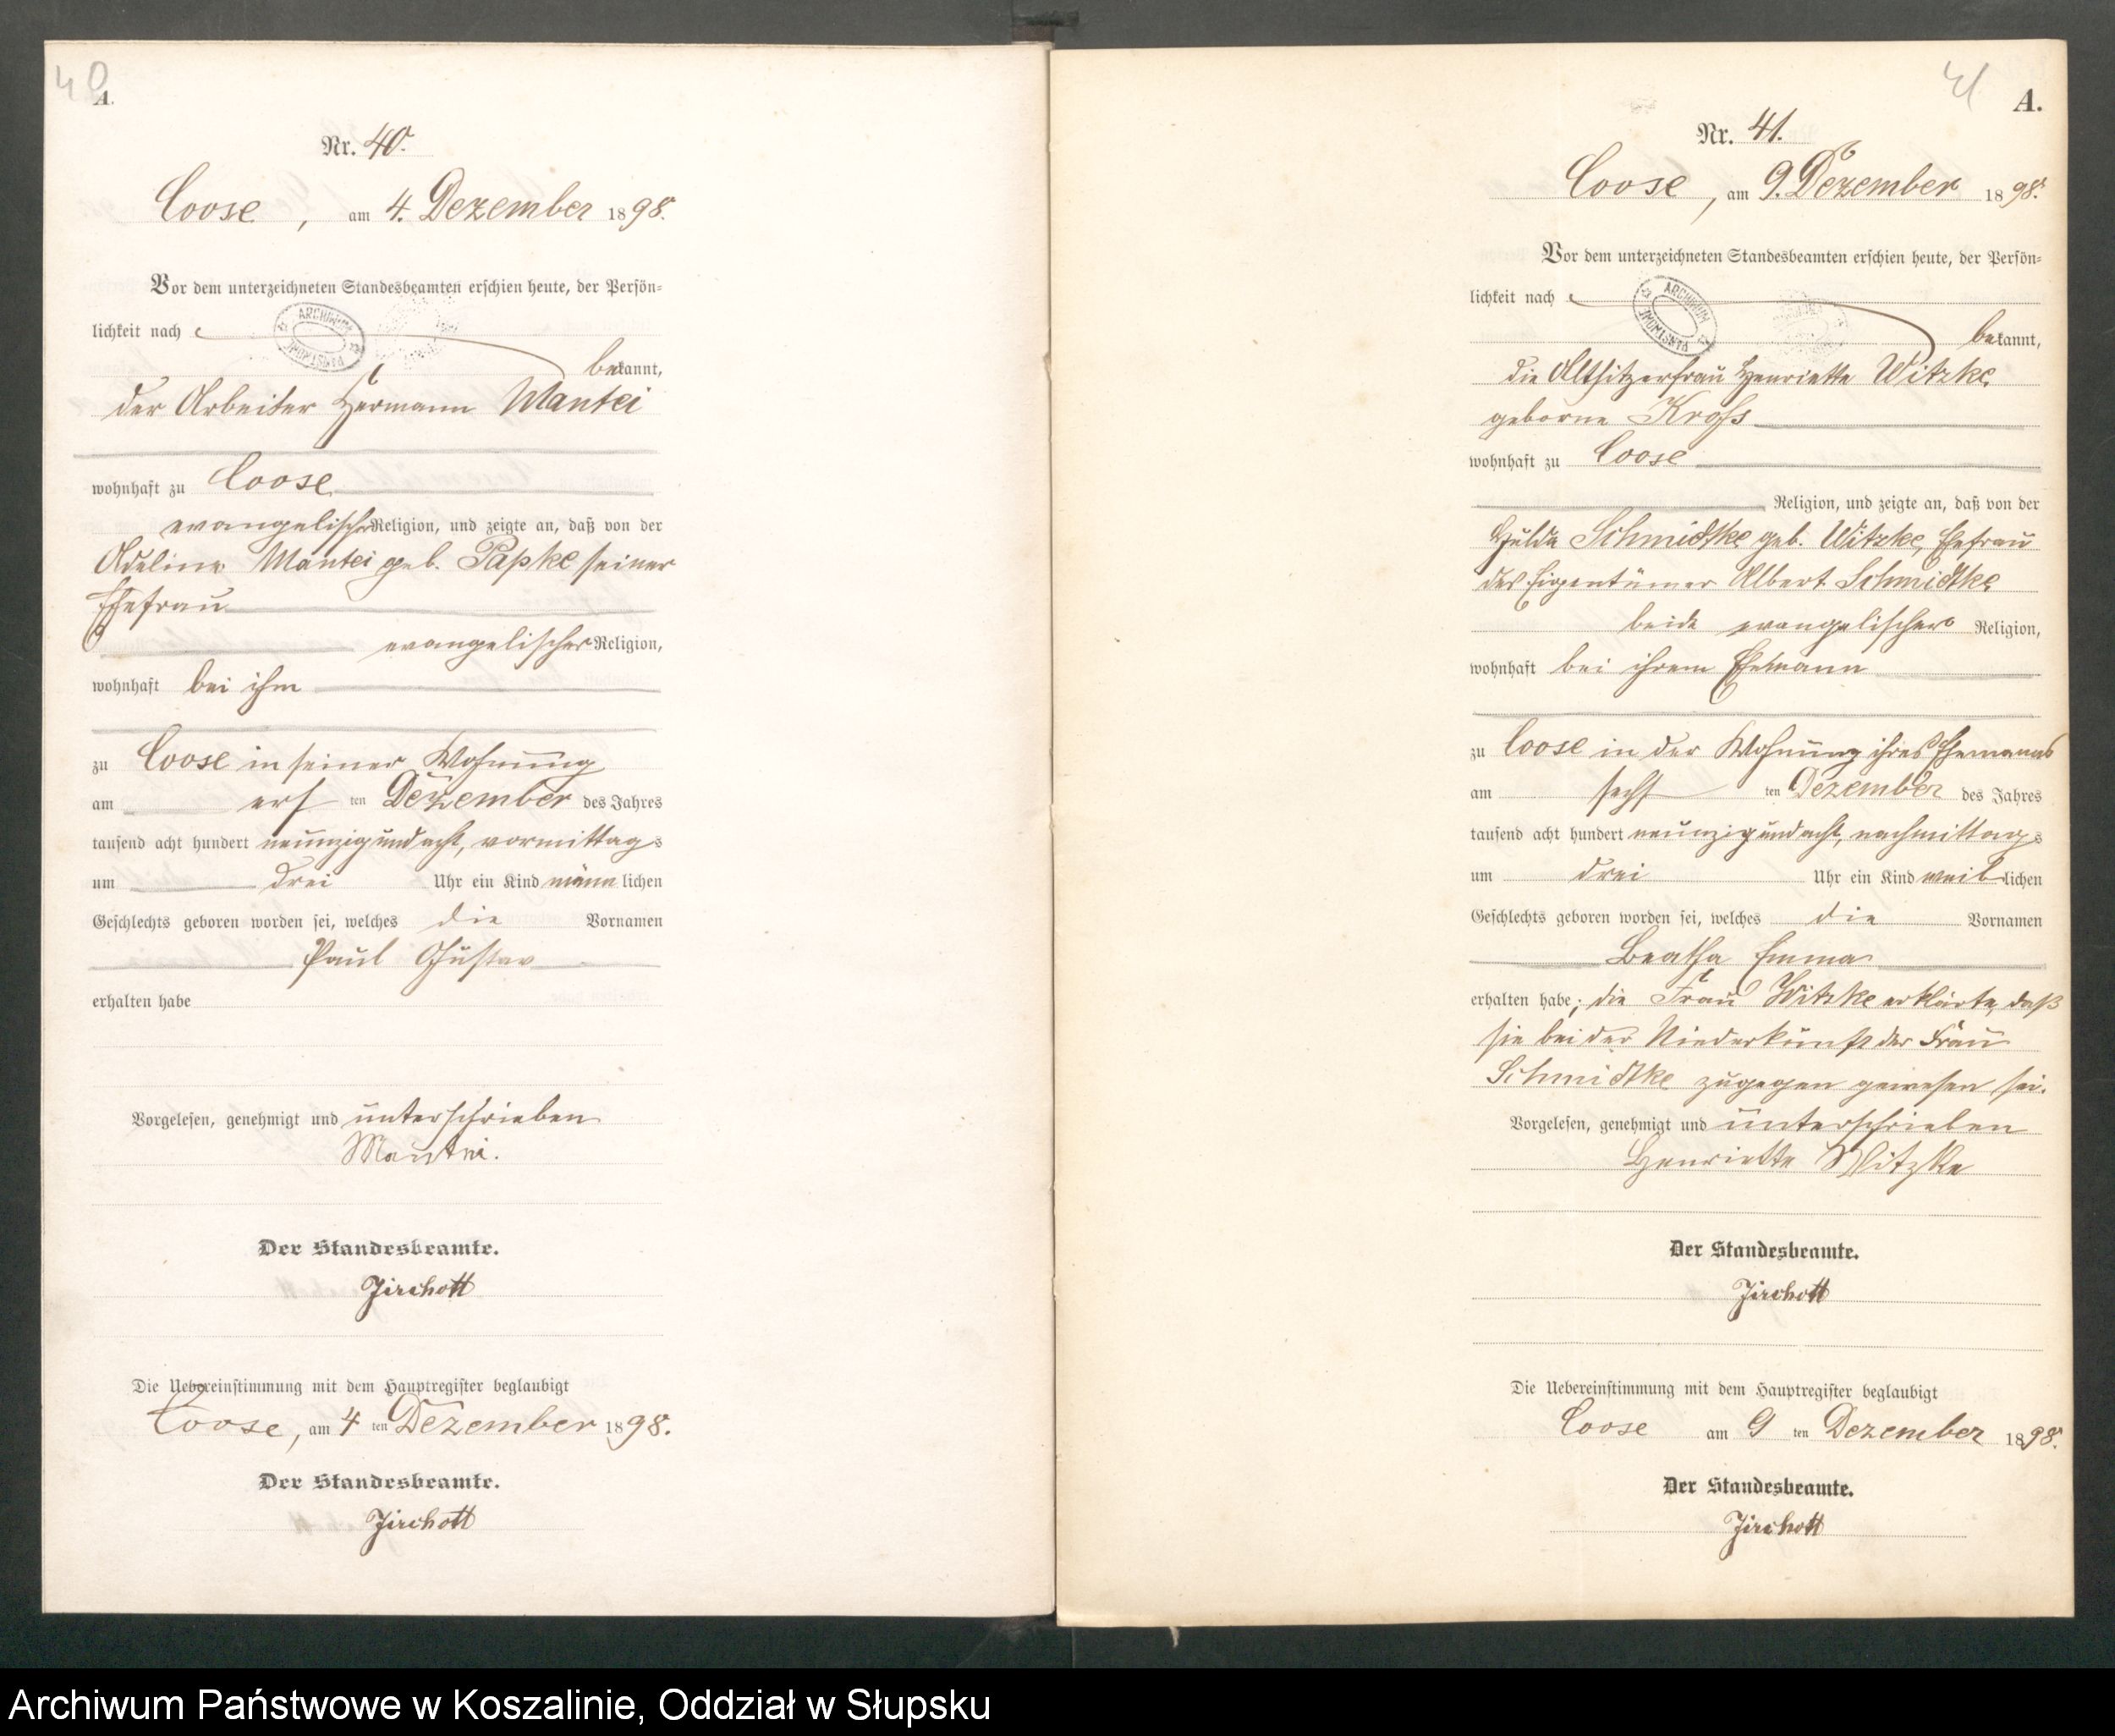 40
A.
Nr. 40.
Coose, am 4. Dezember 1898.
Vor dem unterzeichneten Standesbeamten erschien heute, der Persön=
lichkeit nach
bekannt,
der Arbeiter Hermann Mantei
wohnhaft zu Coose
evangelischer Religion, und zeigte an, daß von der
Adeline Mantei geb. Papke seiner
Ehefrau
evangelischer Religion,
wohnhaft bei ihm
zu Coose in seiner Wohnung
am ersten Dezember des Jahres
tausend acht hundert neunzig und acht, vormittags
um drei Uhr ein Kind männlichen
Geschlechts geboren worden sei, welches die Vornamen
Paul Gustav
erhalten habe
Vorgelesen, genehmigt und unterschrieben
Mantei.
Der Standesbeamte.
Jirchott
Die Uebereinstimmung mit dem Hauptregister beglaubigt
Coose, am 4 ten Dezember 1898.
Der Standesbeamte.
Jirchott
41
A.
Nr. 41.
Coose, am 9. Dezember 1898.
Vor dem unterzeichneten Standesbeamten erschien heute, der Persön=
lichkeit nach
ARCHIWUM PAŃSTWOWE
bekannt,
die Altsitzerfrau Henriette Witzke,
geborne Kroß
wohnhaft zu Coose
Religion, und zeigte an, daß von der
Hulda Schmidtke geb. Witzke, Ehefrau
des Eigentümer Albert Schmidtke,
beide evangelischer Religion,
wohnhaft bei ihrem Ehemann
zu Coose in der Wohnung ihres Ehemanns
am sechsten Dezember des Jahres
tausend acht hundert neunzig und acht, nachmittags
um drei Uhr ein Kind weiblichen
Geschlechts geboren worden sei, welches die Vornamen
Beatha Emma
erhalten habe; die Frau Witzke erklärte, daß
sie bei der Niederkunft der Frau
Schmidtke zugegen gewesen sei.
Vorgelesen, genehmigt und unterschrieben
Henriette Witzke
Der Standesbeamte.
Jirchott
Die Uebereinstimmung mit dem Hauptregister beglaubigt
Coose am 9 ten Dezember 1898.
Der Standesbeamte.
Jirchott
Archiwum Państwowe w Koszalinie, Oddział w Słupsku